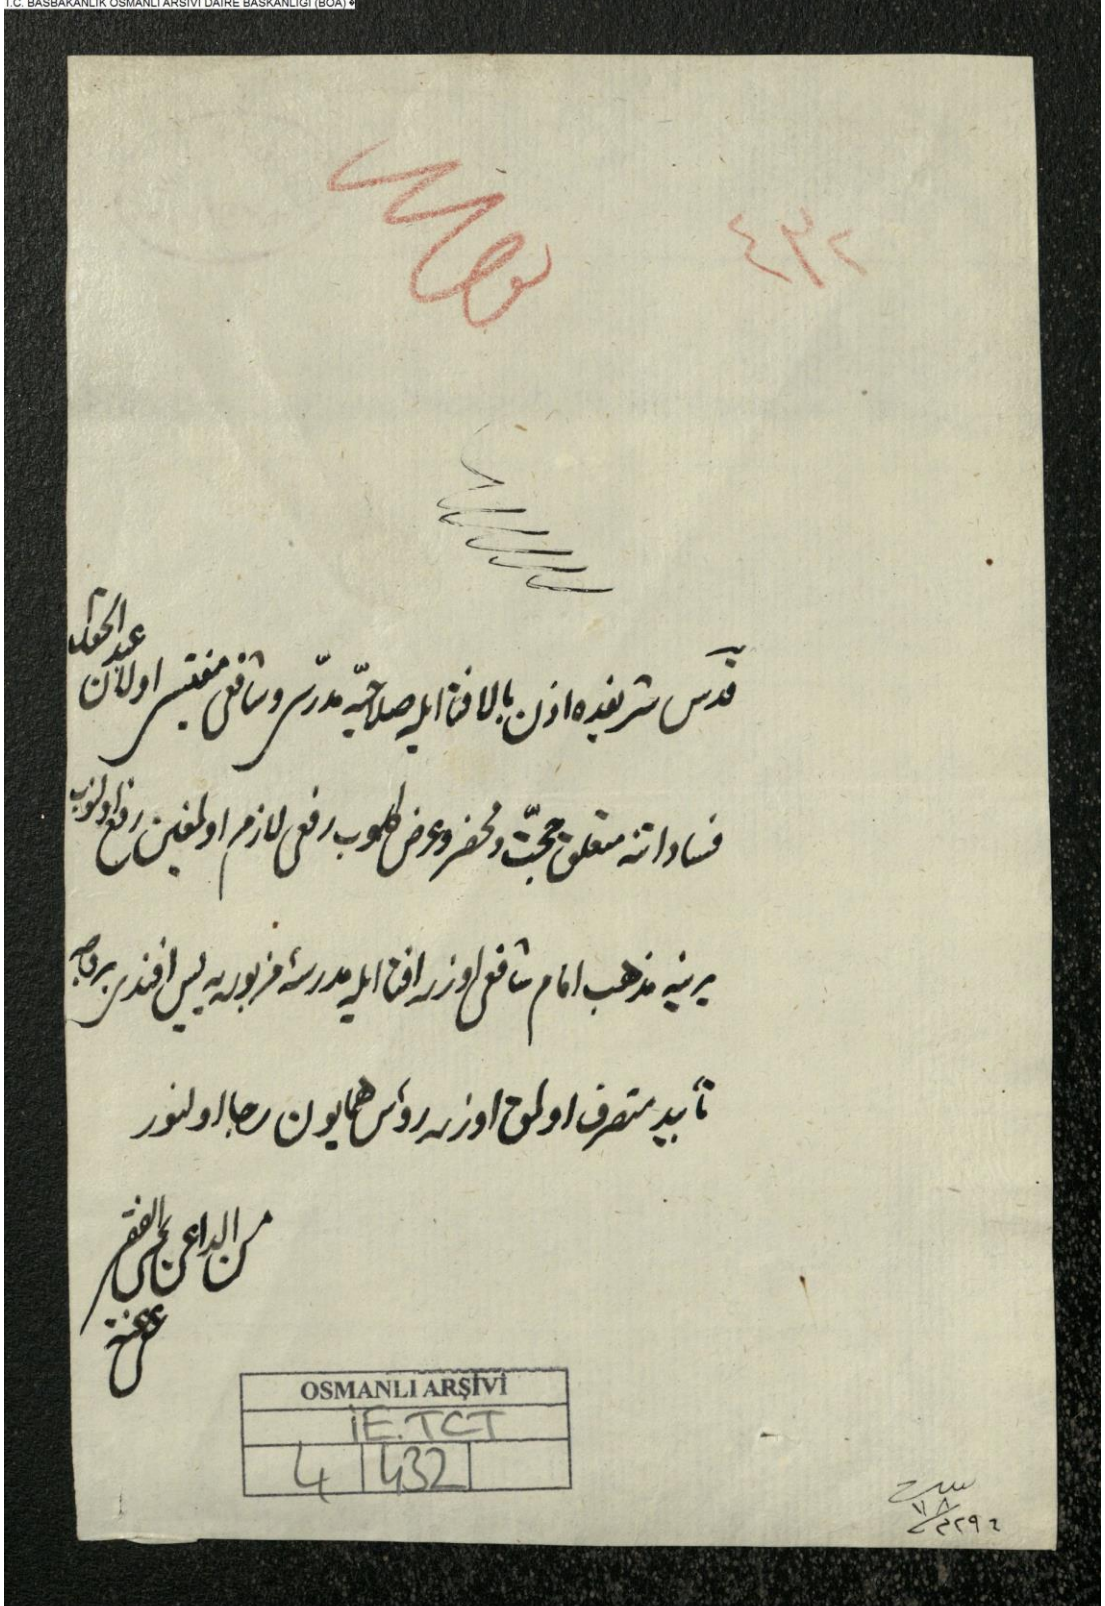 T.C. BAŞBAKANLIK OSMANLI ARŞİVİ DAİRE BAŞKANLIĞI (BOA)
٤٣٢
قدس شريفده اذن بالافتا ايله صلاحيه مدرسى و شافعى مفتيسى اولان عبد الحق
فساداتنه متعلق حجت و محضر و عرض كلوب رفعى لازم اولمغين رفع اولنوب
يرينه مذهب امام شافعى اوزره افتا ايله مدرسهٔ مزبوره يه يس افندى بر وجه
تأبيد متصرف اولمق اوزره رؤس همايون رجا اولنور
من الداعى الفقير
عفى عنه
OSMANLI ARŞİVİ
İE.TCT
4 432